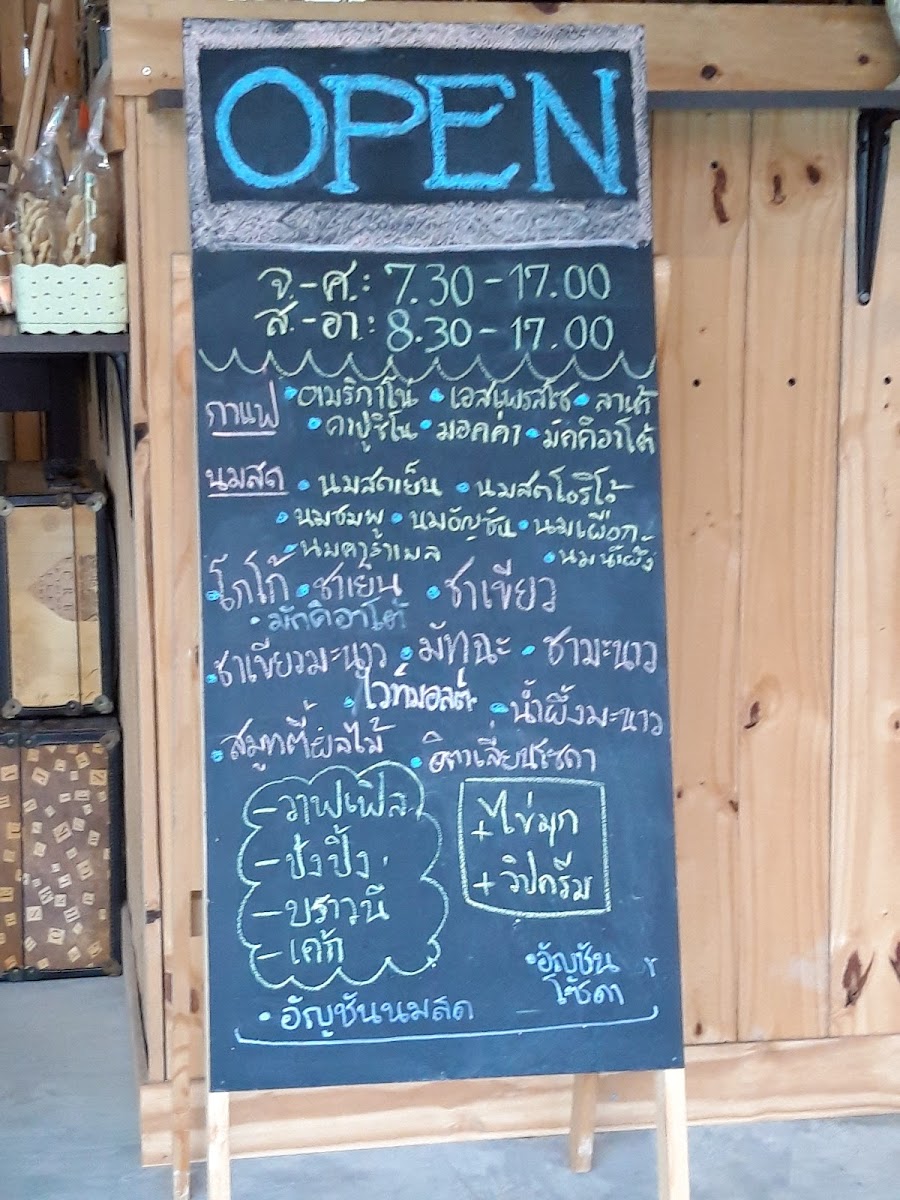 OPEN
จ.-ศ.: 7.30 - 17.00
ส.-อา.: 8.30 - 17.00
กาแฟ • อเมริกาโน่ • เอสเพรสโซ • ลาเต้
• คาปูชิโน • มอคค่า • มัคคิอาโต้
นมสด • นมสดเย็น • นมสดโอริโอ้
• นมชมพู • นมอัญชัน • นมเผือก
• นมคาราเมล • นมน้ำผึ้ง
• โกโก้ • ชาเย็น • ชาเขียว
• มัคคิอาโต้
• ชาเขียวมะนาว • มัทฉะ • ชามะนาว
• ไวท์มอลต์ • น้ำผึ้งมะนาว
• สมูทตี้ผลไม้ • อิตาเลี่ยนโซดา
- วาฟเฟิล
- ปังปิ้ง
- บราวนี่
- เค้ก
+ ไข่มุก
+ วิปครีม
• อัญชัน
โซดา
• อัญชันนมสด